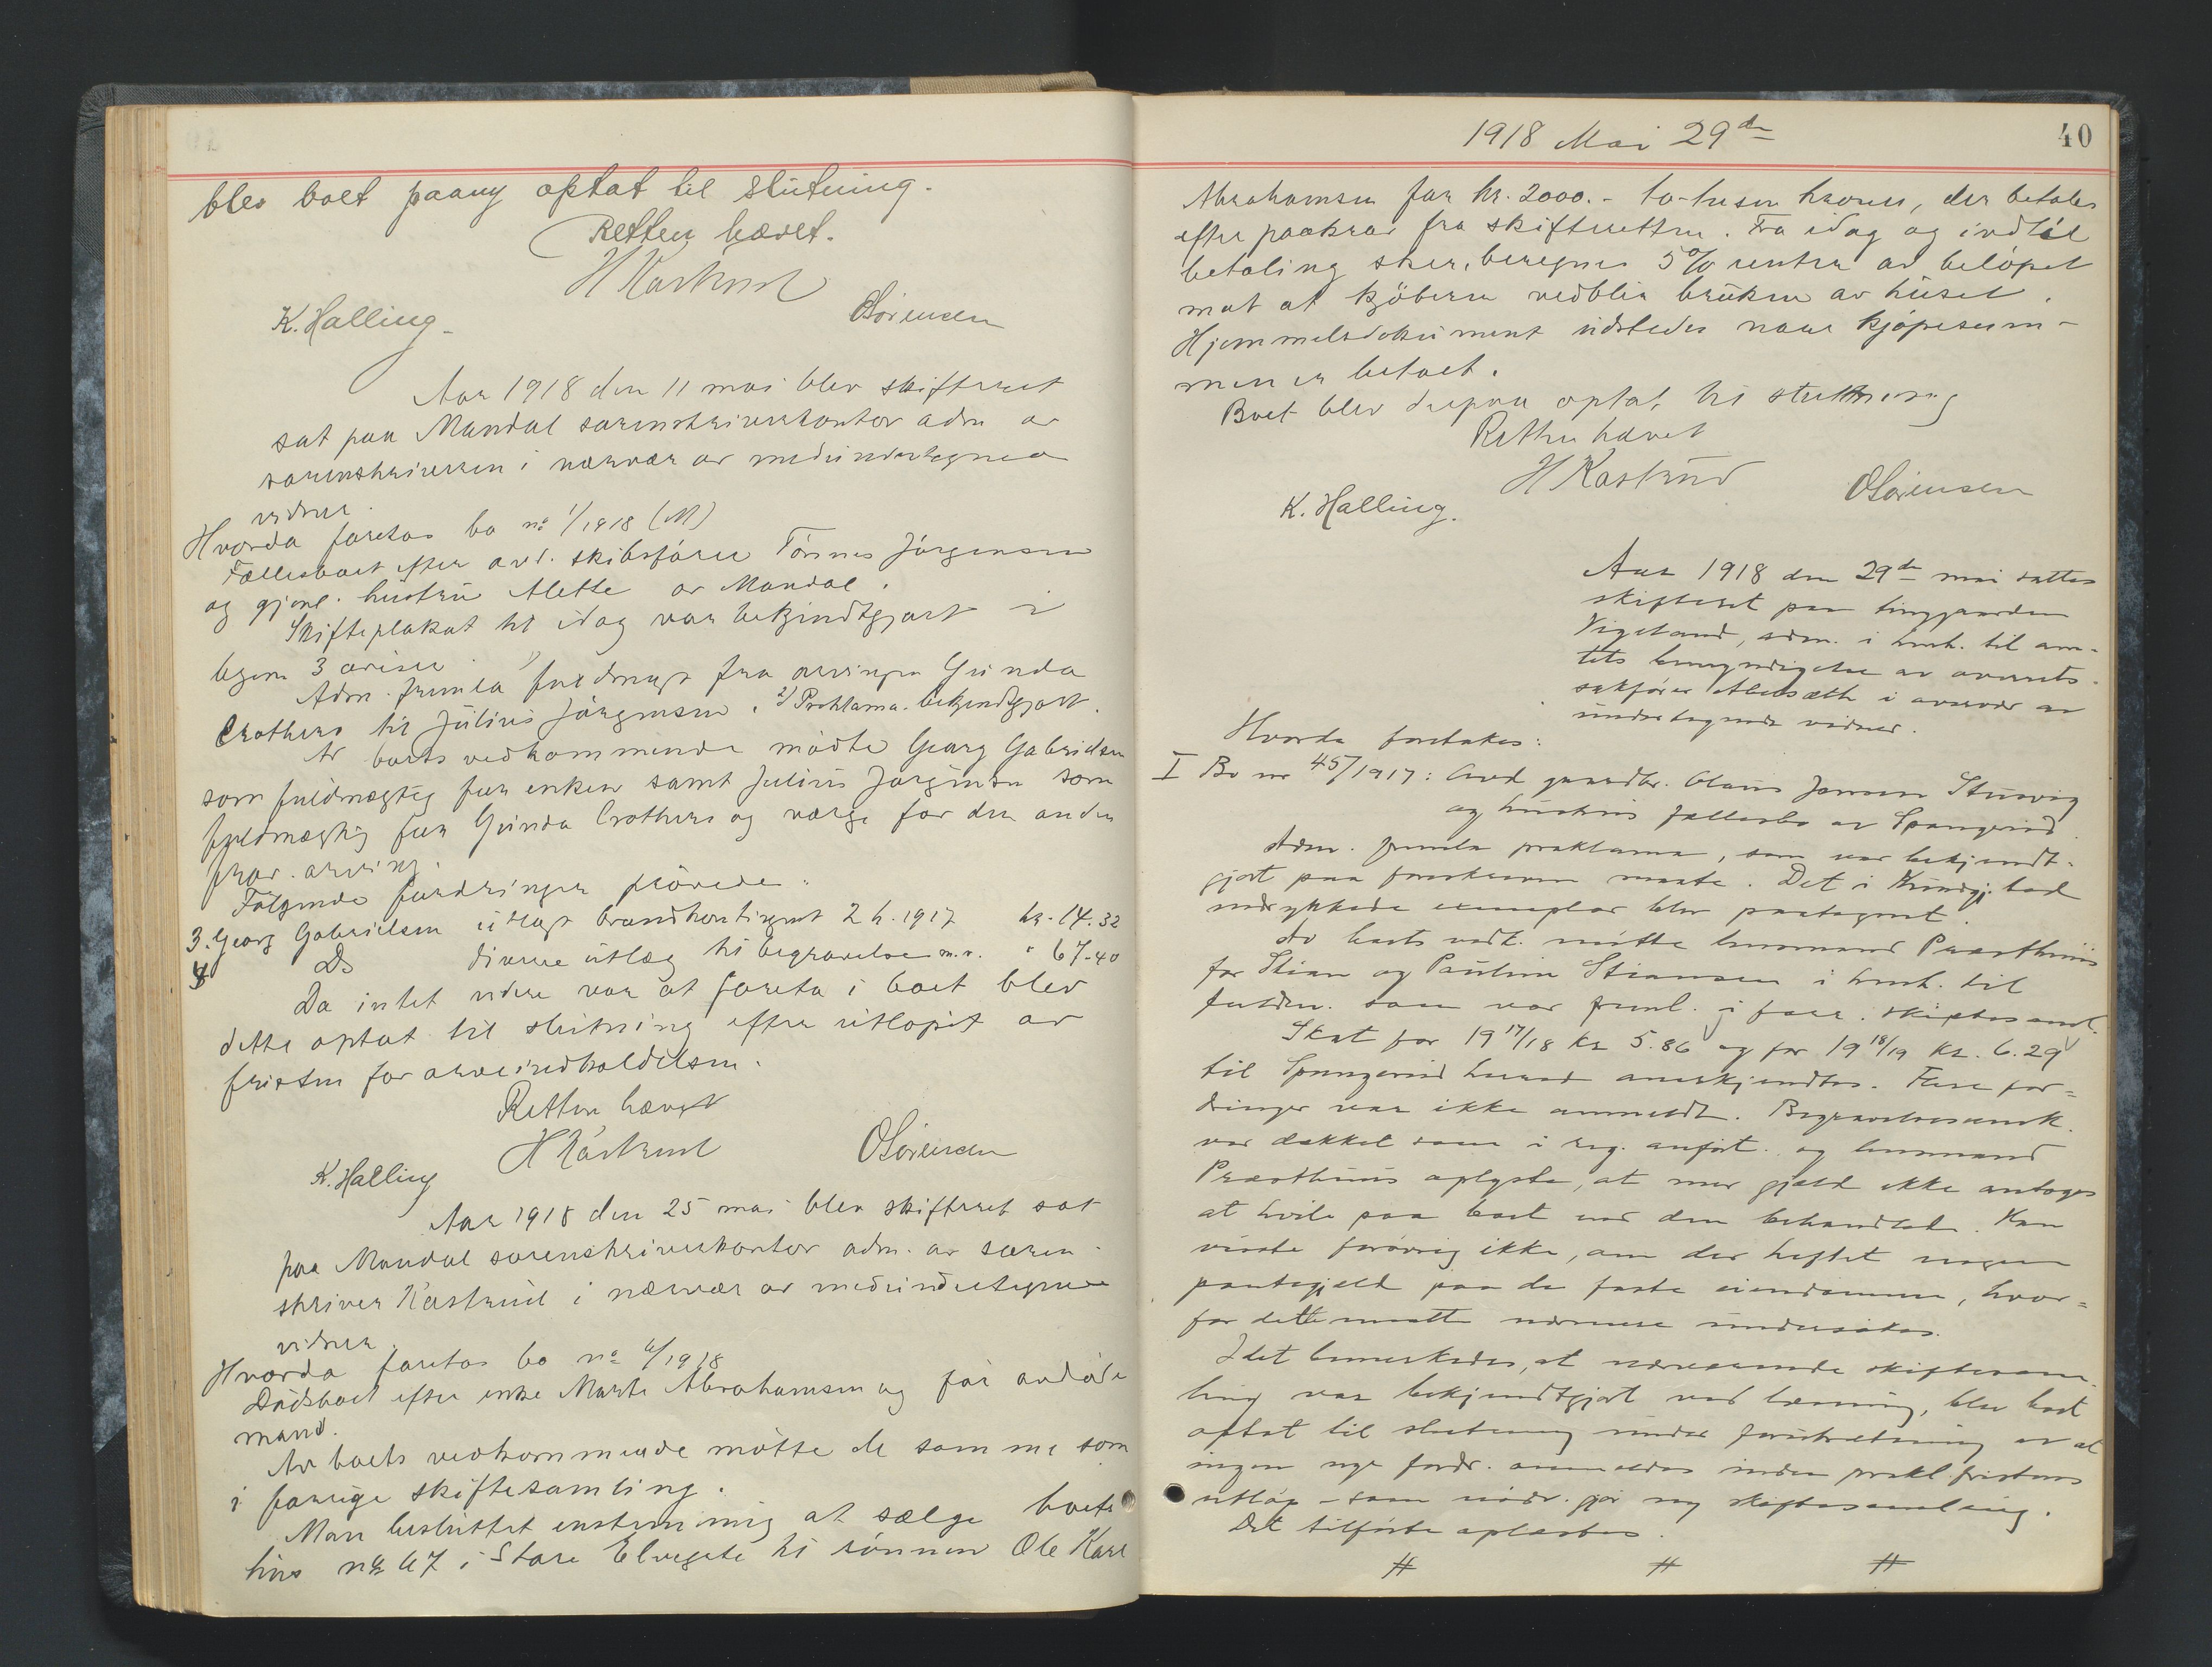 blev boet paany optat til slutning.
Retten hævet.
H Kastrud
K. Halling
OSørensen
Aar 1918 den 11 mai blev skifteret
sat paa Mandal sorenskriverkontor adm av
sorenskriveren i nærvær av medundertegnede
vidner.
Hvorda foretos bo no 1/1918 (M)
Fællesboet efter avd. skibsfører Tönnes Jörgensen
og gjenl. hustru Alette av Mandal.
Skifteplakat til idag var bekjendtgjort i
byens 3 aviser.
Adm. fremla 1) fuldmagt fra arvingen Gunda
Crothers til Julius Jörgensen. 2) Proklama bekjendtgjort.
Av boets vedkommende mødte Georg Gabrielsen
som fuldmægtig for enken samt Julius Jørgensen som
fuldmægtig for Gunda Crothers og værge for den anden
frav. arving.
Følgende fordringer prövedes:
3. Georg Gabrielsen utlagt brandkontingent 2 h. 1917 kr. 14.32
4 Do diverse utlæg til begravelse m.v. " 67.40
Da intet videre var at foreta i boet blev
dette optat til slutning efter utlopet av
fristen for arveindkaldelsen.
Retten hævet
H Kastrud
K. Halling
OSørensen
Aar 1918 den 25 mai blev skifteret sat
paa Mandal sorenskriverkontor adm. av soren-
skriver Kastrud i nærvær av medundertegnede
vidner.
Hvorda foretos bo no 6/1918
Dödsboet efter enke Marte Abrahamsen og før avdöde
mand.
Av boets vedkommende møtte de samme som
i forrige skiftesamling.
Man besluttet enstemmig at sælge boets
hus no 67 i Store Elvegate til sönnen Ole Karl
1918 Mai 29de
40
Abrahamsen for kr. 2000.- to-tusen kroner, der betales
efter paakrav fra skifteretten. Fra idag og indtil
betaling sker, beregnes 5% renter av belöpet
mot at kjöberen vedblir bruken av huset.
Hjemmelsdokument utstedes naar kjøpesum-
men er betalt.
Boet blev derpaa optat til slutning
Retten hævet
H Kastrud
K. Halling.
OSørensen
Aar 1918 den 29de mai sattes
skifteret paa tinggaarden
Vigeland, adm. i henh. til am-
tets bemyndigelse av overrets-
sakfører i overvær av
undertegnede vidner.
Hvorda foretakes:
I Bo nr 45/1917: Avd gaardbr. Olaus Jensen Stusvig
og hustrus fællesbo av Spangereid
Adm. fremla proklama, som var bekjendt-
gjort paa foreskreven maate. Det i Kundgj. blad
indrykkede exemplar blev paategnet.
Av boets vedk. møtte lensmand Præsthuus
for Stian og Pauline Stiansen i henh. til
fuldm. som var freml. i forr. skiftesaml.
Skat for 1917/18 kr 5.86 og for 1918/19 kr. 6.29
til Spangereid herred anerkjendtes. Flere for-
dringer var ikke anmeldt. Begravelsesomk.
var dækket som i reg. anført. og lensmand
Præsthuus oplyste, at mer gjeld ikke antoges
at hvile paa boet end den behandlede. Han
visste forøvrig ikke, om der heftet nogen
pantegjeld paa de faste eiendomme, hvor-
for dette maatte nærmere undersøkes.
Idet bemerkedes, at nærværende skiftesam-
ling var bekjendtgjort ved læsning, blev boet
optat til slutning under forutsætning av at
ingen nye fordr. anmeldes inden prokl. fristens
utløp - som nødv. gjør ny skiftesamling.
Det tilførte oplæstes.
# # #